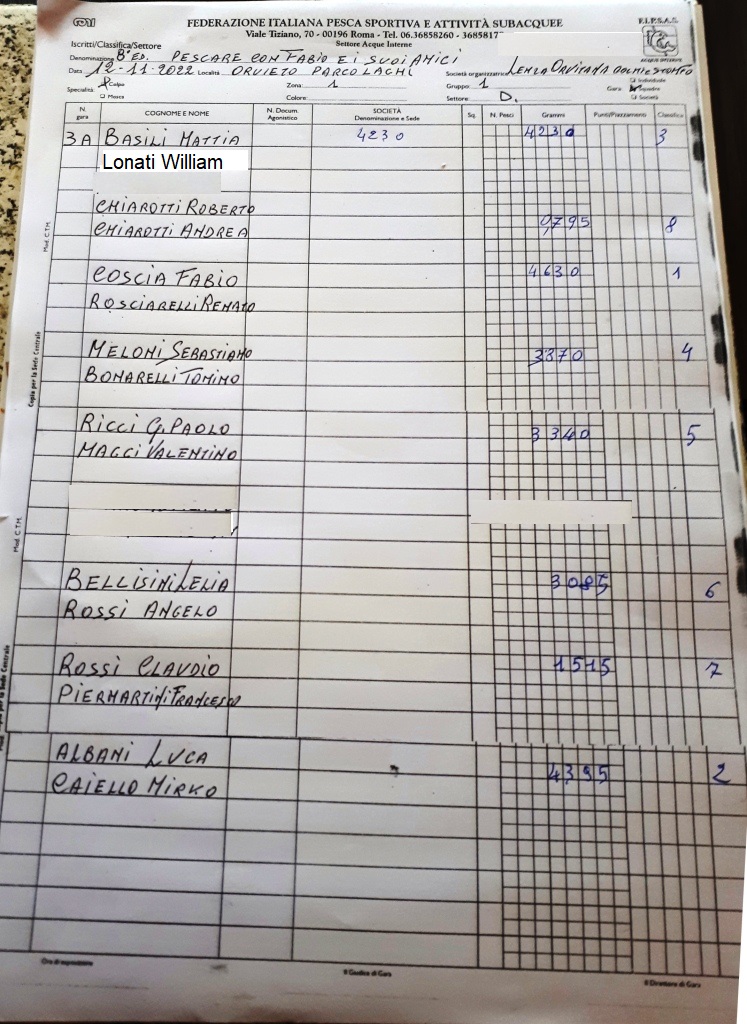 CONI FEDERAZIONE ITALIANA PESCA SPORTIVA E ATTIVITÀ SUBACQUEE F.I.P.S.A.S.
Viale Tiziano, 70 - 00196 Roma - Tel. 06.36858260 - 3685817
Iscritti/Classifica/Settore Settore Acque Interne
Denominazione 8ª ED. PESCARE CON FABIO E I SUOI AMICI
Data 12-11-2022 Località ORVIETO PARCO LAGHI Società organizzatrice LENZA ORVITANA
Specialità: Colpo Zona: 1 Gruppo: 1 Gara: Individuale
Mosca Colore: Settore: D. Squadre
Società
N. gara COGNOME E NOME N. Docum. Agonistico SOCIETÀ Denominazione e Sede Sq. N. Pesci Grammi Punti/Piazzamenti Classifica
3A BASILI MATTIA 4230 4230 3
Lonati William
CHIAROTTI ROBERTO
CHIAROTTI ANDREA 0,795 8
COSCIA FABIO 4630 1
ROSCIARELLI RENATO
MELONI SEBASTIANO 3370 4
BONARELLI TONINO
RICCI G.PAOLO 3340 5
MAGGI VALENTINO
BELLISINI LELIA 3085 6
ROSSI ANGELO
ROSSI CLAUDIO 1515 7
PIERMARTINI FRANCESCO
ALBANI LUCA
CAIELLO MIRKO 4395 2
Mod. C.T.M.
Copia per la Sede Centrale
Mod. C.T.M.
Copia per la Sede Centrale
Ora di esposizione Il Giudice di Gara Il Direttore di Gara